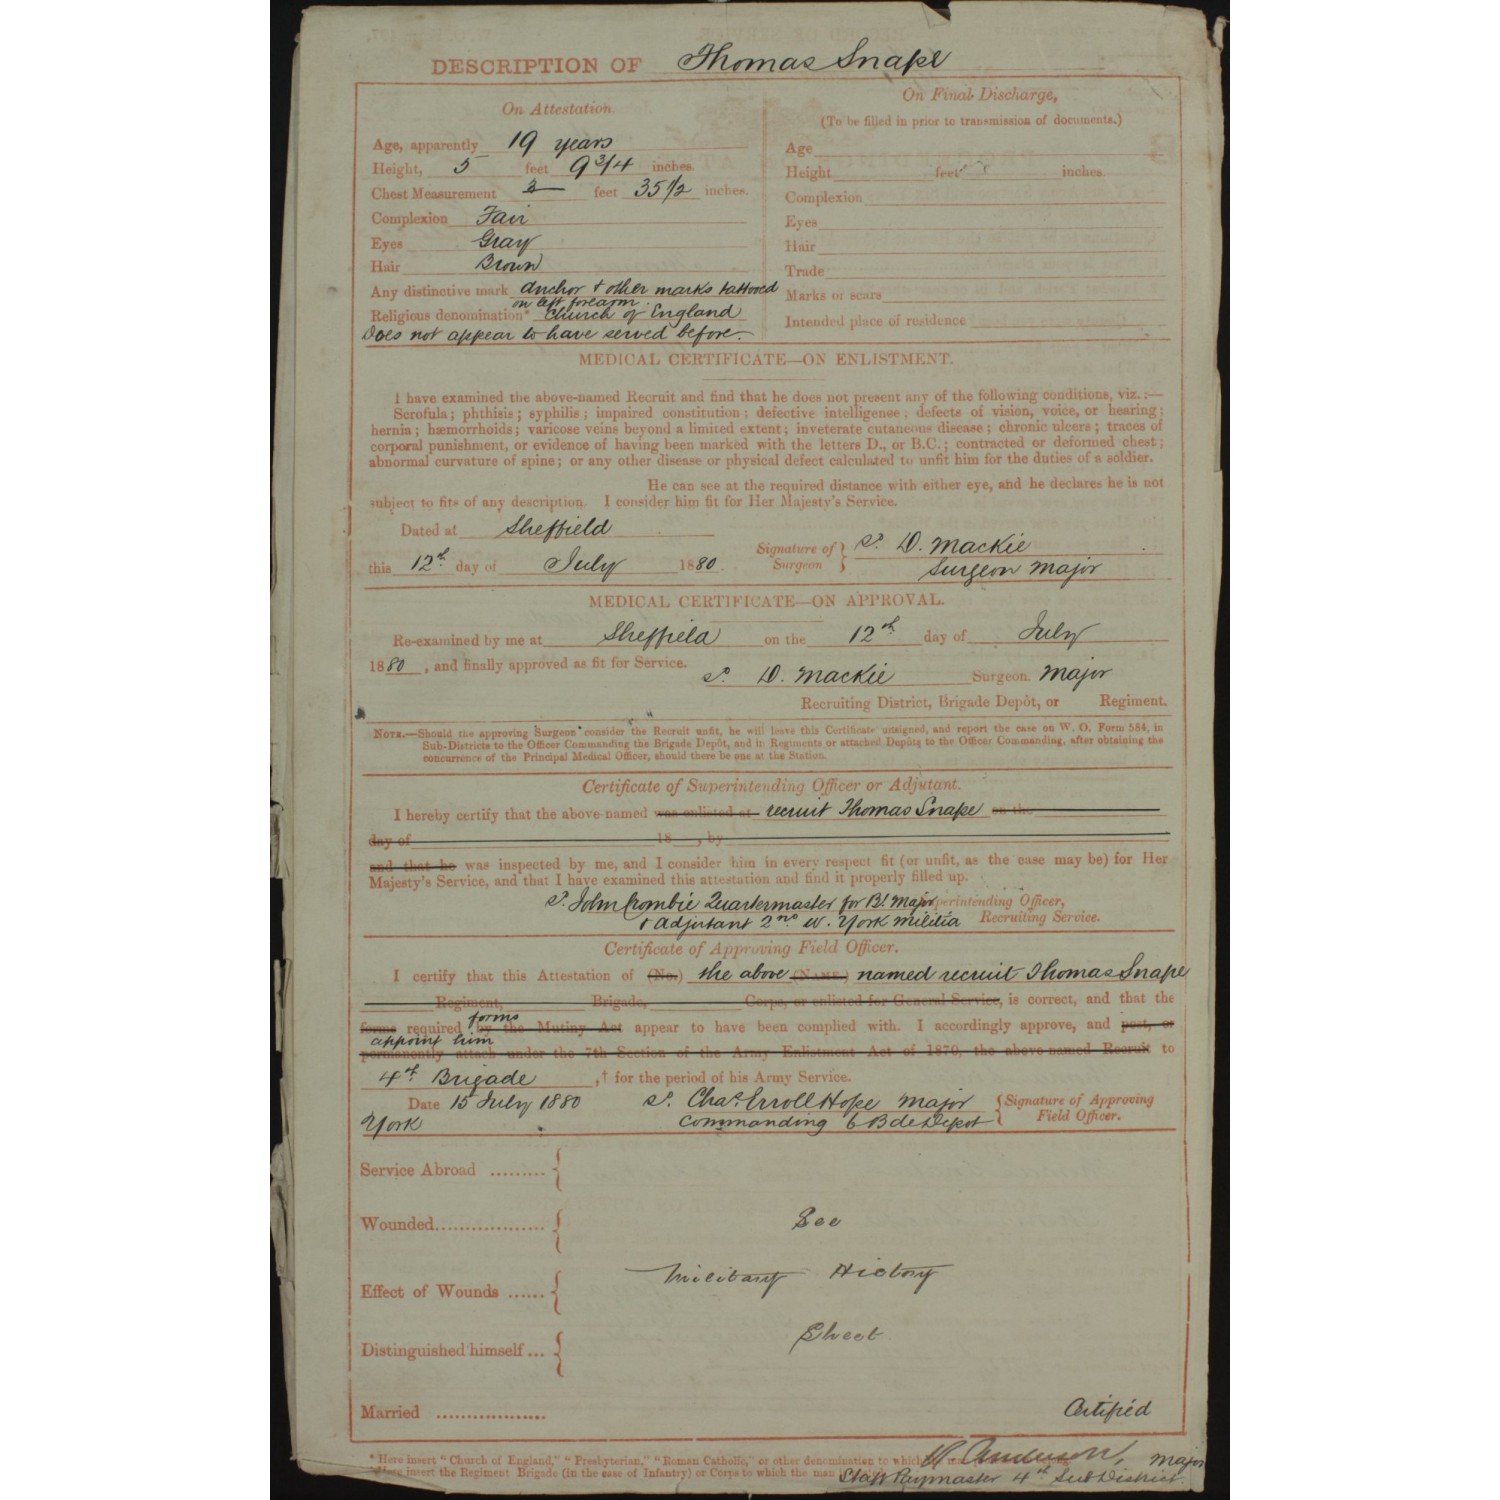 DESCRIPTION OF Thomas Snape
On Attestation.
Age, apparently 19 years
Height, 5 feet 9 3/4 inches.
Chest Measurement 3 feet 35 1/2 inches.
Complexion Fair
Eyes Gray
Hair Brown
Any distinctive mark anchor & other marks tattooed
on left forearm.
Religious denomination* Church of England
Does not appear to have served before.
On Final Discharge,
(To be filled in prior to transmission of documents.)
Age
Height feet inches
Complexion
Eyes
Hair
Trade
Marks or scars
Intended place of residence
MEDICAL CERTIFICATE—ON ENLISTMENT.
I have examined the above-named Recruit and find that he does not present any of the following conditions, viz.:—
Scrofula; phthisis; syphilis; impaired constitution; defective intelligence; defects of vision, voice, or hearing;
hernia; hæmorrhoids; varicose veins beyond a limited extent; inveterate cutaneous disease; chronic ulcers; traces of
corporal punishment, or evidence of having been marked with the letters D., or B.C.; contracted or deformed chest;
abnormal curvature of spine; or any other disease or physical defect calculated to unfit him for the duties of a soldier.
He can see at the required distance with either eye, and he declares he is not
subject to fits of any description. I consider him fit for Her Majesty's Service.
Dated at Sheffield
this 12th day of July 1880.
Signature of Surgeon } D. Mackie
Surgeon Major
MEDICAL CERTIFICATE—ON APPROVAL.
Re-examined by me at Sheffield on the 12th day of July
1880, and finally approved as fit for Service.
D. Mackie Surgeon. Major
Recruiting District, Brigade Depôt, or Regiment.
NOTE.—Should the approving Surgeon consider the Recruit unfit, he will leave this Certificate unsigned, and report the case on W. O. Form 584, in
Sub-Districts to the Officer Commanding the Brigade Depôt, and in Regiments or attached Depôts to the Officer Commanding, after obtaining the
concurrence of the Principal Medical Officer, should there be one at the Station.
Certificate of Superintending Officer or Adjutant.
I hereby certify that the above-named was enlisted at recruit Thomas Snape on the
day of 18 , by
and that he was inspected by me, and I consider him in every respect fit (or unfit, as the case may be) for Her
Majesty's Service, and that I have examined this attestation and find it properly filled up.
John Crombie Quartermaster for Bt. Major Superintending Officer,
& Adjutant 2nd W. York Militia Recruiting Service.
Certificate of Approving Field Officer.
I certify that this Attestation of (No.) the above (NAME.) named recruit Thomas Snape
Regiment, Brigade, Corps, or enlisted for General Service, is correct, and that the
forms
forms required by the Mutiny Act appear to have been complied with. I accordingly approve, and post, or
appoint him
permanently attach under the 7th Section of the Army Enlistment Act of 1870, the above-named Recruit to
4th Brigade ,† for the period of his Army Service.
Date 15 July 1880
York
Chas. Erroll Hope Major
Commanding 6 Bde Depot
{ Signature of Approving
Field Officer.
Service Abroad .........
Wounded..................
Effect of Wounds ......
Distinguished himself ...
Married ..................
See
Military History
Sheet
Certified
Anderson, Major
Staff Paymaster 4th Sub District
* Here insert "Church of England," "Presbyterian," "Roman Catholic," or other denomination to which
Here insert the Regiment Brigade (in the case of Infantry) or Corps to which the man